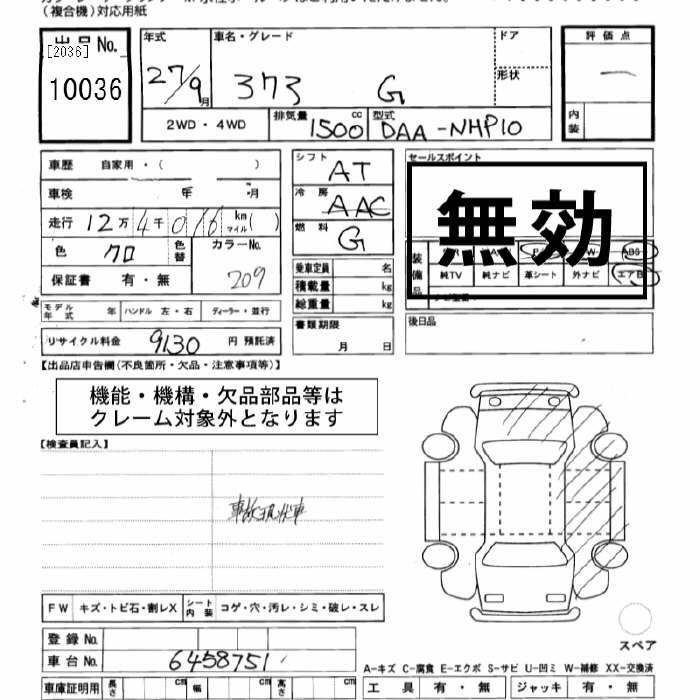 （複合機）対応用紙
出品No.
[2036]
10036
年式
27/9月
車名・グレード
373 G
ドア
形状
評価点
一
内装
2WD・4WD
排気量
1500cc
型式
DAA-NHP10
車歴 自家用・（ ）
車検 年 月
走行 12万4千016 km マイル（ ）
色 クロ
色替
カラーNo.
209
保証書 有・無
モデル年式 年 ハンドル 左・右 ディーラー・並行
リサイクル料金 9130 円 預託済
シフト AT
冷房 AAC
燃料 G
乗車定員 名
積載量 kg
総重量 kg
書類期限
月 日
セールスポイント
無効
装備品
純TV 純ナビ 革シート 外ナビ エアB
後日品
【出品店申告欄（不良箇所・欠品・注意事項等）】
機能・機構・欠品部品等は
クレーム対象外となります
【検査員記入】
事故現状車
FW キズ・トビ石・割レX シート内装 コゲ・穴・汚レ・シミ・破レ・スレ
登録No.
車台No. 6458751
車庫証明用 長さ cm 幅 cm 高さ cm
スペア
A-キズ C-腐食 E-エクボ S-サビ U-凹ミ W-補修 XX-交換済
工具 有・無 ジャッキ 有・無